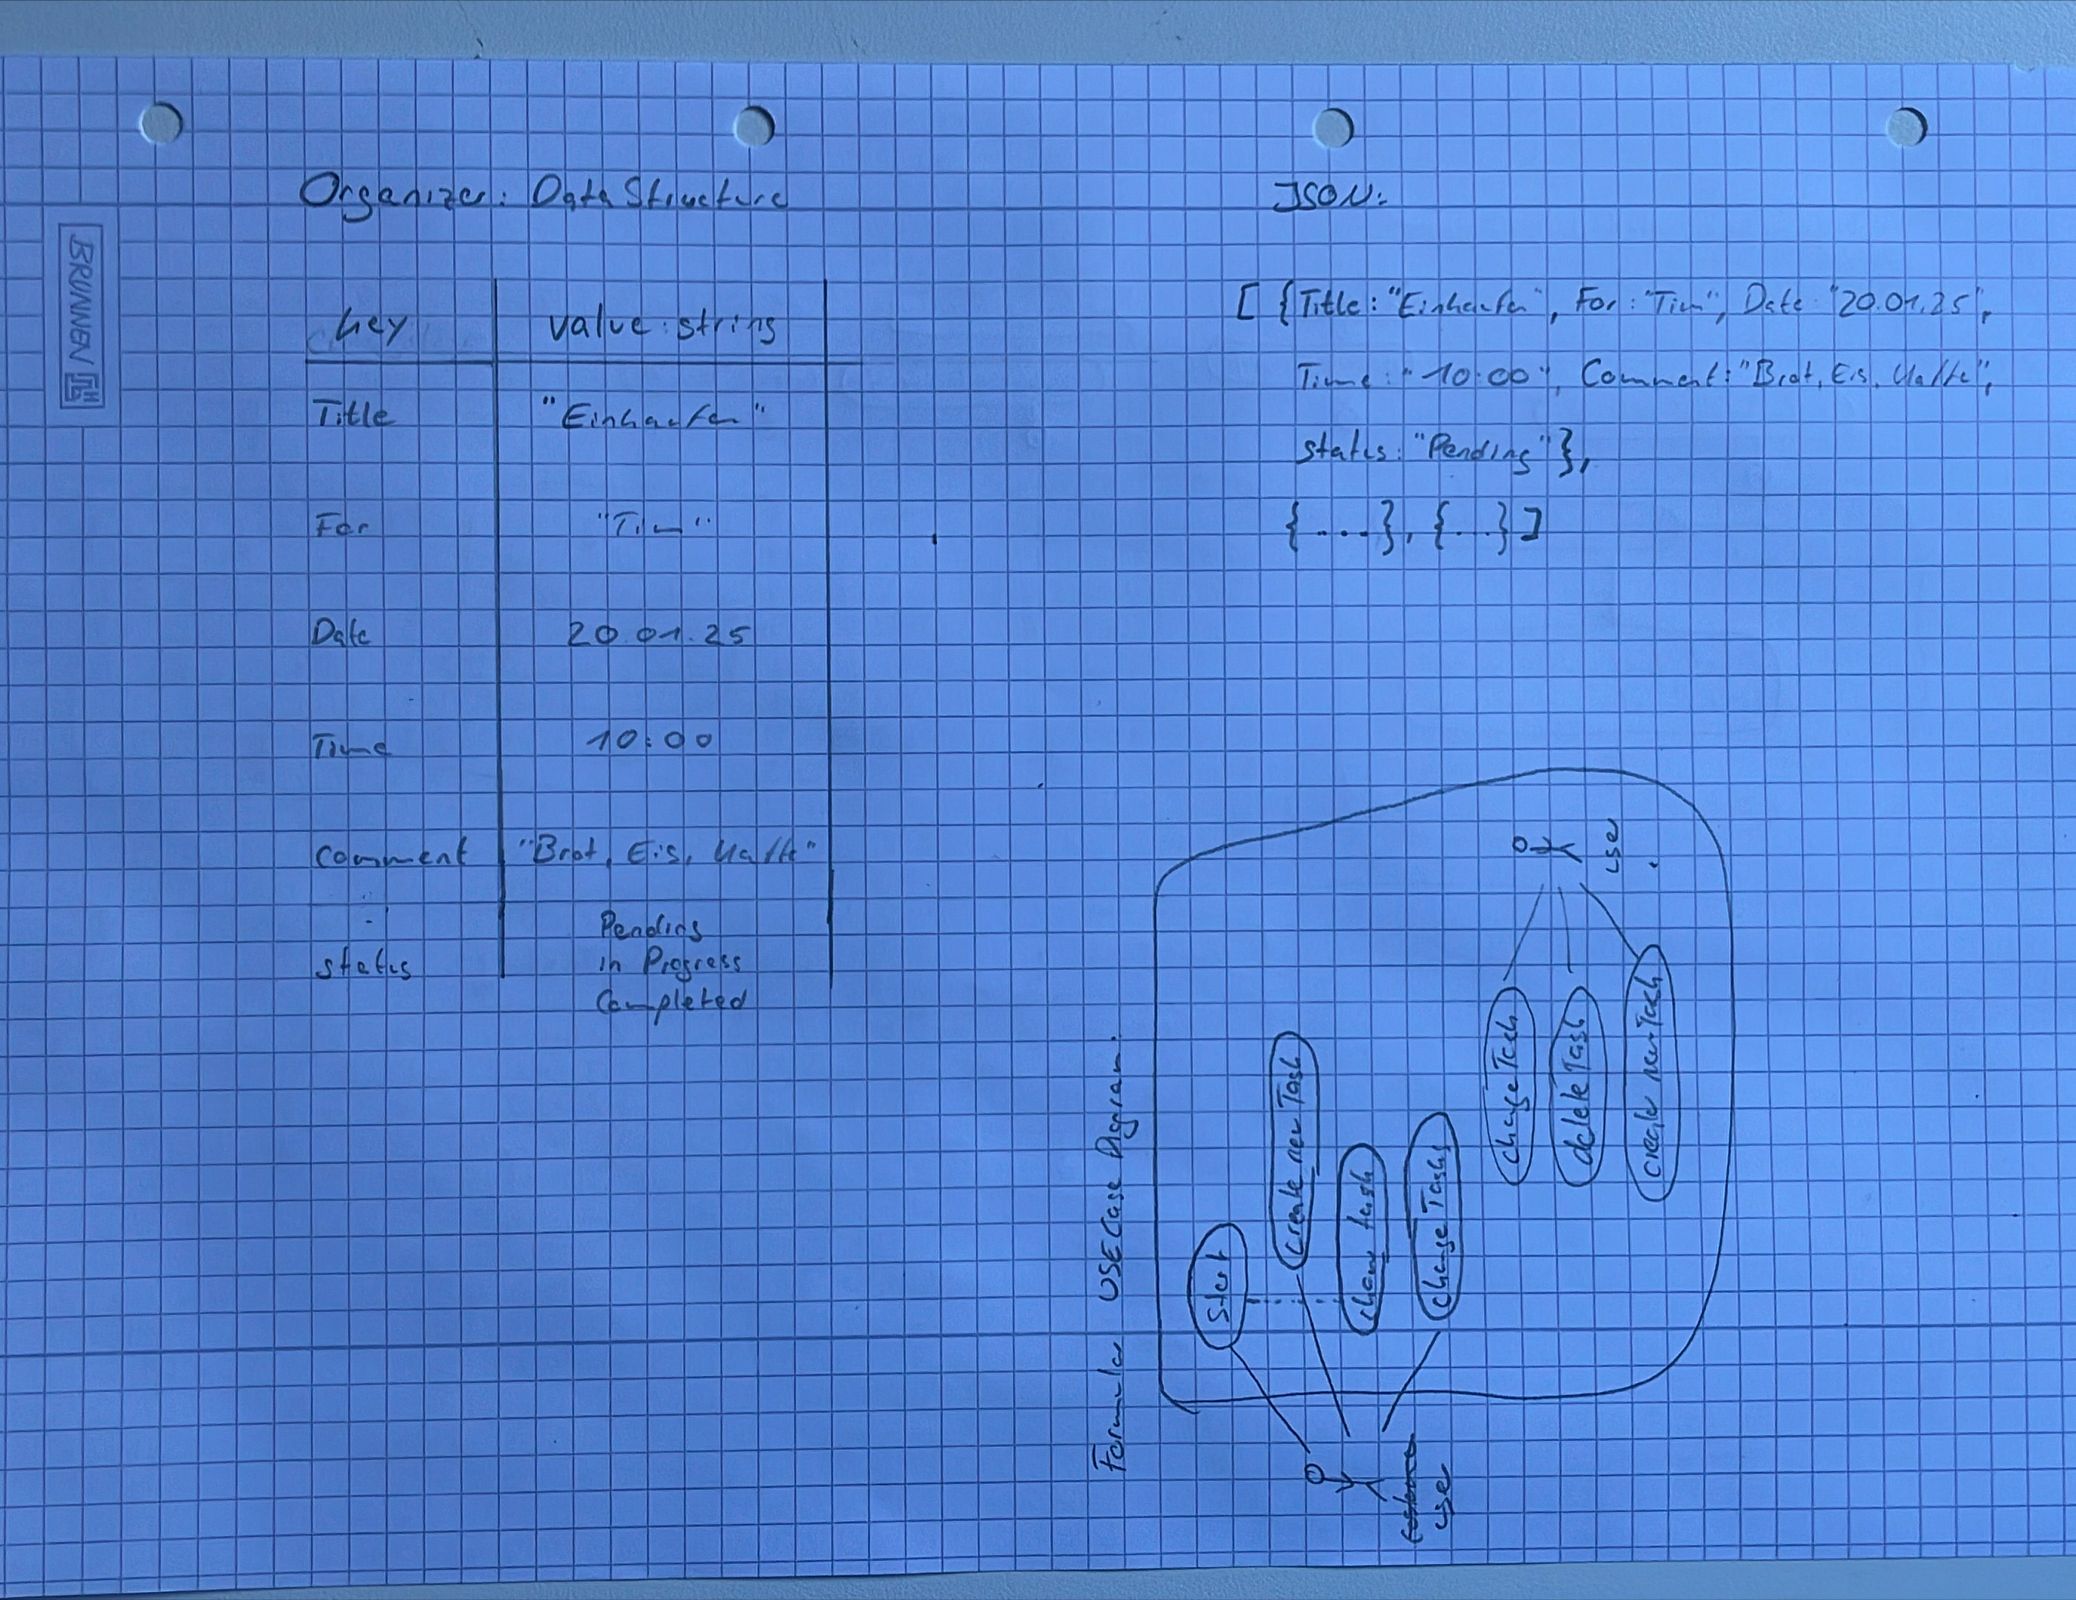 BRUNNEN
Organizer: Data Structure
key value: string
Title "Einkaufen"
For "Tim"
Date 20.01.25
Time 10:00
Comment "Brot, Eis, Kaffe"
status Pending
in Progress
Completed
JSON:
[ {Title: "Einkaufen", For: "Tim", Date: "20.01.25",
Time: "10:00", Comment: "Brot, Eis, Kaffe",
status: "Pending" },
{....}, {...} ]
Formular USECase Diagram:
Start
create new Task
show task
change Tasks
use
change Task
delete Task
create new Task
use